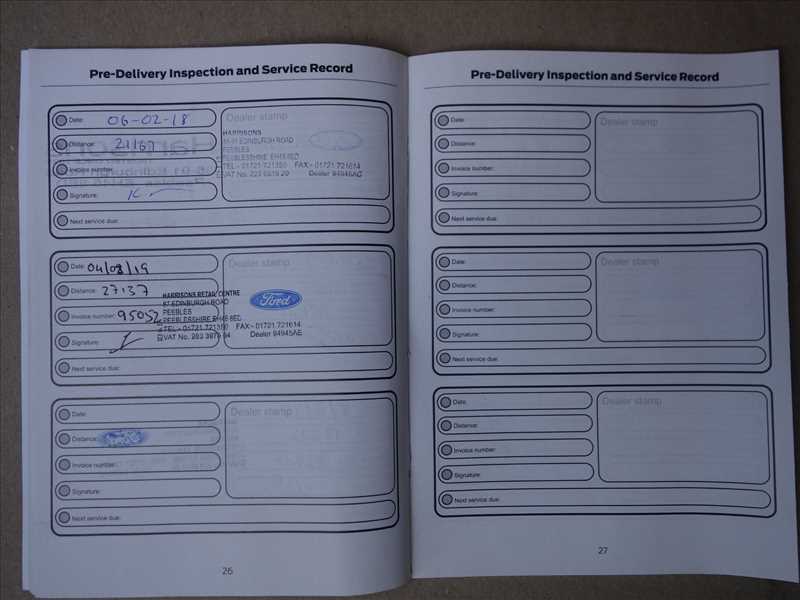 Pre-Delivery Inspection and Service Record
Date: 06-02-18
Dealer stamp
Distance: 21167
Invoice number:
Signature:
Next service due:
HARRISONS
EDINBURGH ROAD
PEEBLES
PEEBLESSHIRE EH45 8ED
TEL:- 01721 721350 FAX:- 01721 721614
VAT No. Dealer 94945AE
Date: 04/03/19
Dealer stamp
Distance: 27137
Invoice number: 95052
Signature:
Next service due:
HARRISONS RETAIL CENTRE
EDINBURGH ROAD
PEEBLES
PEEBLESSHIRE EH45 8ED
TEL:- 01721 721350 FAX:- 01721 721614
VAT No. Dealer 94945AE
Ford
Date:
Dealer stamp
Distance:
Invoice number:
Signature:
Next service due:
26
Pre-Delivery Inspection and Service Record
Date:
Dealer stamp
Distance:
Invoice number:
Signature:
Next service due:
Date:
Dealer stamp
Distance:
Invoice number:
Signature:
Next service due:
Date:
Dealer stamp
Distance:
Invoice number:
Signature:
Next service due:
27